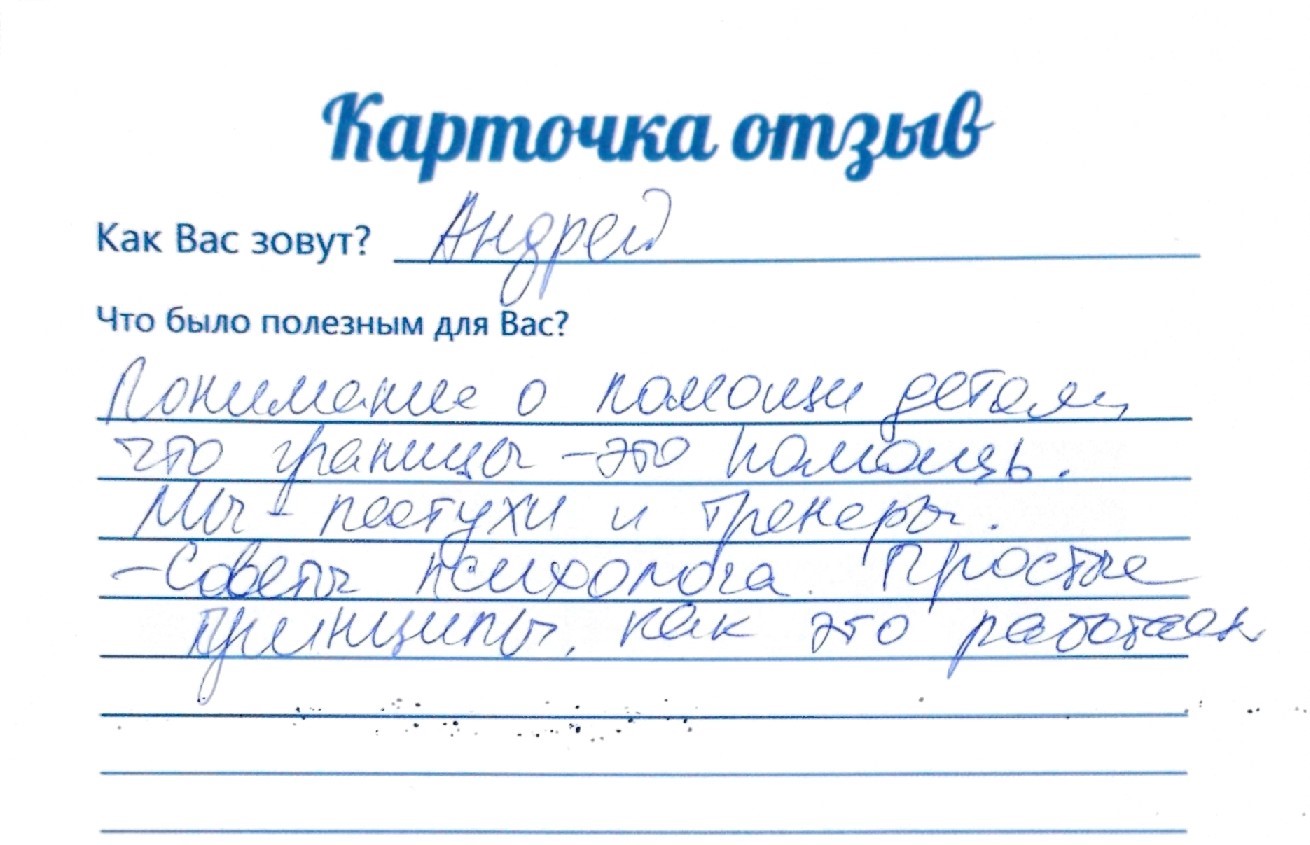 Карточка отзыв
Как Вас зовут? Андрей
Что было полезным для Вас?
Понимание о помощи детям,
что границы - это помощь.
Мы - пастухи и тренеры.
- Советы психолога. Простые
принципы, как это работает